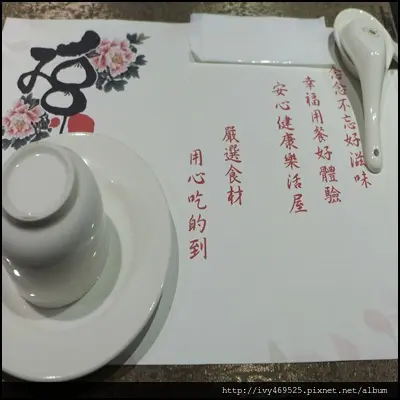 念念不忘好滋味
幸福用餐好體驗
安心健康樂活屋
嚴選食材
用心吃的到
http://ivy469525.pixnet.net/album